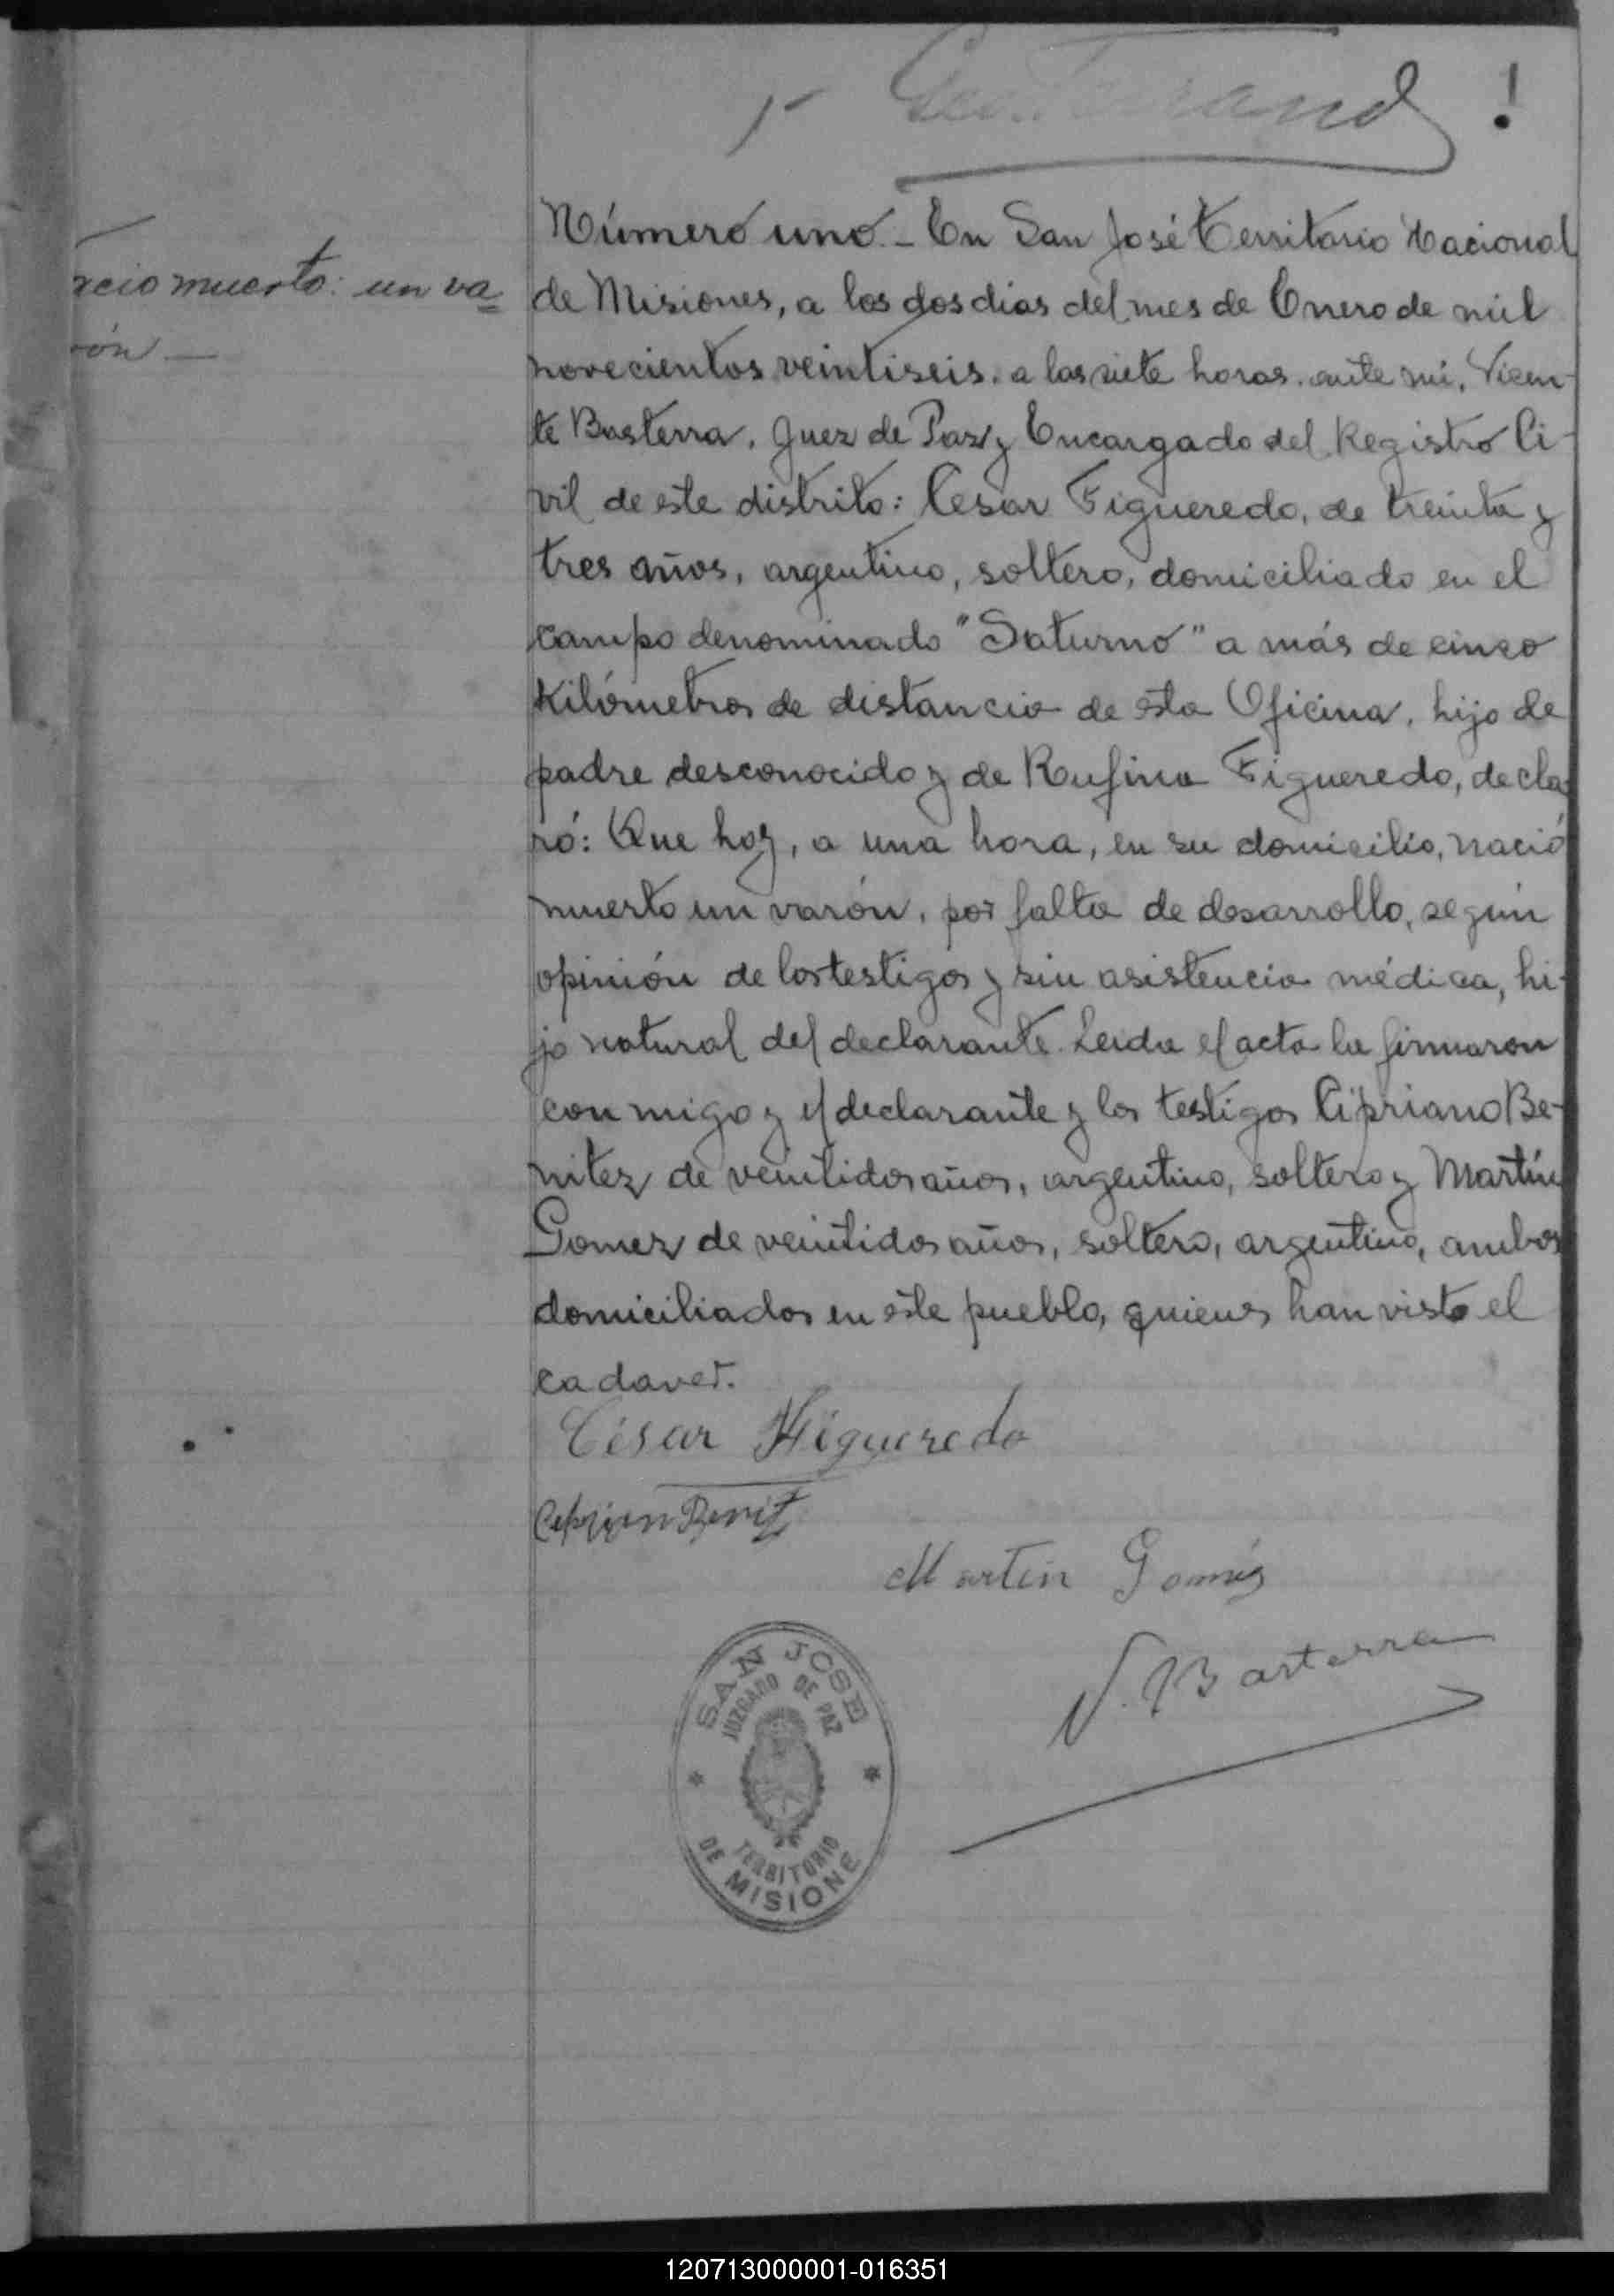 !
Número uno. - En San José Territorio Nacional
muerto: un va=
de Misiones, a los dos dias del mes de Enero de mil
novecientos veintiseis. a las siete horas. ante mi, Vicen-
te Basterra, Juez de Paz y Encargado del Registro Ci-
vil de este distrito: Cesar Figueredo, de treinta y
tres años, argentino, soltero, domiciliado en el
campo denominado "Saturno" a más de cinco
Kilómetros de distancia de esta Oficina, hijo de
padre desconocido y de Rufina Figueredo, decla-
ró: Que hoy, a una hora, en su domicilio, nació
muerto un varón, por falta de desarrollo, según
opinión de los testigos y sin asistencia médica, hi-
jo natural del declarante. Leida el acta la firmaron
con migo y el declarante y los testigos Cipriano Be-
nitez de veintidos años, argentino, soltero y Martín
Gomez de veintidos años, soltero, argentino, ambos
domiciliados en este pueblo, quienes han visto el
cadaver.
César Figueredo
Martin Gomés
V. Basterra
SAN JOSE
JUZGADO DE PAZ
TERRITORIO
DE MISIONE
120713000001-016351